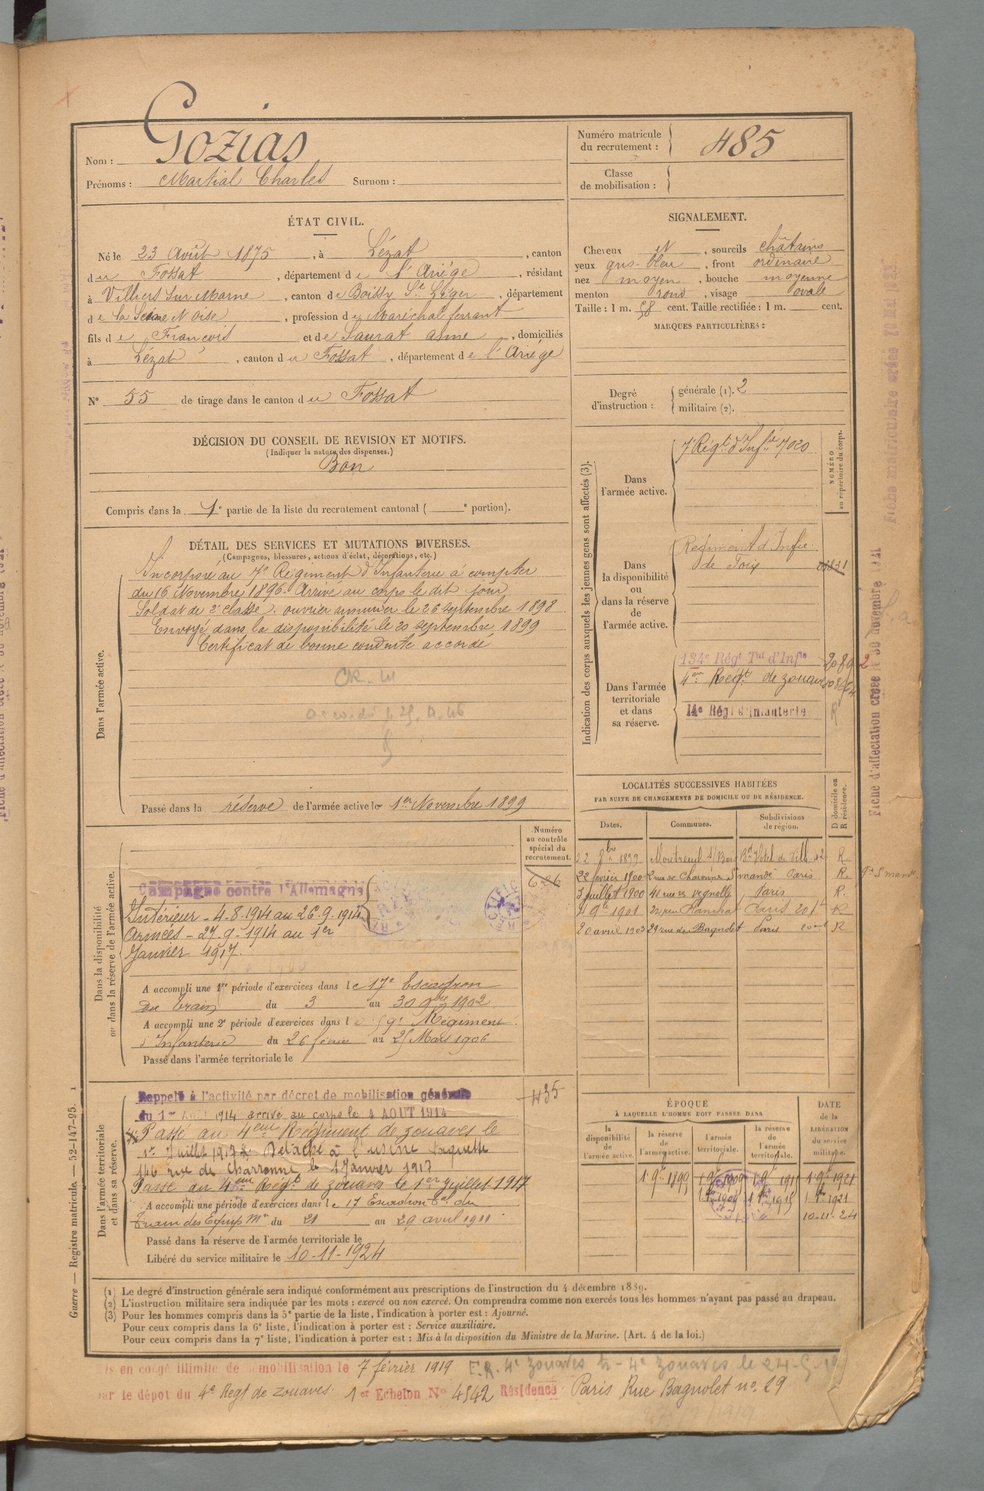 Nom : Gozias
Prénoms : Martial Charles Surnom :
Numéro matricule du recrutement : 485
Classe de mobilisation :
ÉTAT CIVIL.
Né le 23 Août 1875, à Lézat, canton
du Fossat, département de l'Ariège, résidant
à Villiers sur Marne, canton de Boissy St Léger, département
de la Seine et Oise, profession de Maréchal ferrant
fils de François et de Saurat Anne, domiciliés
à Lézat, canton du Fossat, département de l'Ariège
N° 55 de tirage dans le canton du Fossat
SIGNALEMENT.
Cheveux N, sourcils châtains
yeux gris-bleu, front ordinaire
nez moyen, bouche moyenne
menton rond, visage ovale
Taille : 1 m. 58 cent. Taille rectifiée : 1 m. cent.
MARQUES PARTICULIÈRES :
Degré d'instruction : générale (1). 2
militaire (2).
DÉCISION DU CONSEIL DE REVISION ET MOTIFS.
(Indiquer la nature des dispenses.)
Bon
Compris dans la 1e partie de la liste du recrutement cantonal ( e portion).
DÉTAIL DES SERVICES ET MUTATIONS DIVERSES.
(Campagnes, blessures, actions d'éclat, décorations, etc.)
Dans l'armée active.
Incorporé au 7e Régiment d'Infanterie à compter
du 16 Novembre 1896. Arrivé au corps le dit jour
Soldat de 2e classe. ouvrier armurier le 26 septembre 1898
Envoyé dans la disponibilité le 20 septembre 1899
Certificat de bonne conduite accordé
Passé dans la réserve de l'armée active le 1er Novembre 1899
Indication des corps auxquels les jeunes gens sont affectés (3).
NUMÉRO au répertoire du corps.
Dans l'armée active.
7e Régt d'Infie 7020
Dans la disponibilité ou dans la réserve de l'armée active.
Régiment d'Infie
de Foix
Dans l'armée territoriale et dans sa réserve.
134e Régt Tal d'Infie
4me Régt de zouaves
14e Régt d'Infanterie R
Fiche matriculaire créée
Fiche d'affectation créée le 30 novembre
LOCALITÉS SUCCESSIVES HABITÉES
PAR SUITE DE CHANGEMENTS DE DOMICILE OU DE RÉSIDENCE.
Dates. Communes. Subdivisions de région. D domicile ou R résidence.
22 8bre 1899 Montreuil s/Bois Bd Hôtel de Ville R
22 février 1900 rue de Charonne St mandé Paris R.
3 juillet 1900 41 rue Paris R.
4 9bre 1901 Paris 20e R
20 avril 1903 29 rue de Bagnolet Paris R
Numéro au contrôle spécial du recrutement.
Dans la disponibilité ou dans la réserve de l'armée active.
Campagne contre l'Allemagne
Intérieur - 4.8.1914 au 26.9.1914
Armées - 27.9.1914 au 1er
Janvier 1917.
A accompli une 1re période d'exercices dans le 17e Escadron
du train du 3 au 30 9bre 1902
A accompli une 2e période d'exercices dans le 59e Régiment
d'Infanterie du 26 février au 25 Mars 1906
Passé dans l'armée territoriale le
435
Dans l'armée territoriale et dans sa réserve.
Rappelé à l'activité par décret de mobilisation générale
du 1er Août 1914 arrivé au corps le 4 AOUT 1914
Passé au 4eme Régiment de zouaves le
1er Juillet 1917. Détaché à l'usine
146 rue de Charonne le 1 Janvier 1917
Passé au 4eme Régt de zouaves le 1er juillet 1917
A accompli une période d'exercices dans le 17 Escadron Tal du
Train des Equip Mres du 21 au 29 avril 1911
Passé dans la réserve de l'armée territoriale le
Libéré du service militaire le 10-11-1924
ÉPOQUE
À LAQUELLE L'HOMME DOIT PASSER DANS
la disponibilité de l'armée active. la réserve de l'armée active. l'armée territoriale. la réserve de l'armée territoriale.
DATE de la LIBÉRATION du service militaire.
1 9bre 1899 1 9bre 1909 1 9bre 1915 1 9bre 1921
10-11-24
(1) Le degré d'instruction générale sera indiqué conformément aux prescriptions de l'instruction du 4 décembre 1889.
(2) L'instruction militaire sera indiquée par les mots : exercé ou non exercé. On comprendra comme non exercés tous les hommes n'ayant pas passé au drapeau.
(3) Pour les hommes compris dans la 5e partie de la liste, l'indication à porter est : Ajourné.
Pour ceux compris dans la 6e liste, l'indication à porter est : Service auxiliaire.
Pour ceux compris dans la 7e liste, l'indication à porter est : Mis à la disposition du Ministre de la Marine. (Art. 4 de la loi.)
Guerre — Registre matricule. — 52-147-95.
is en congé illimité de démobilisation le 7 février 1919
par le dépôt du 4e Régt de zouaves. 1er Echelon N° 4542 Résidence Paris Rue Bagnolet no. 29